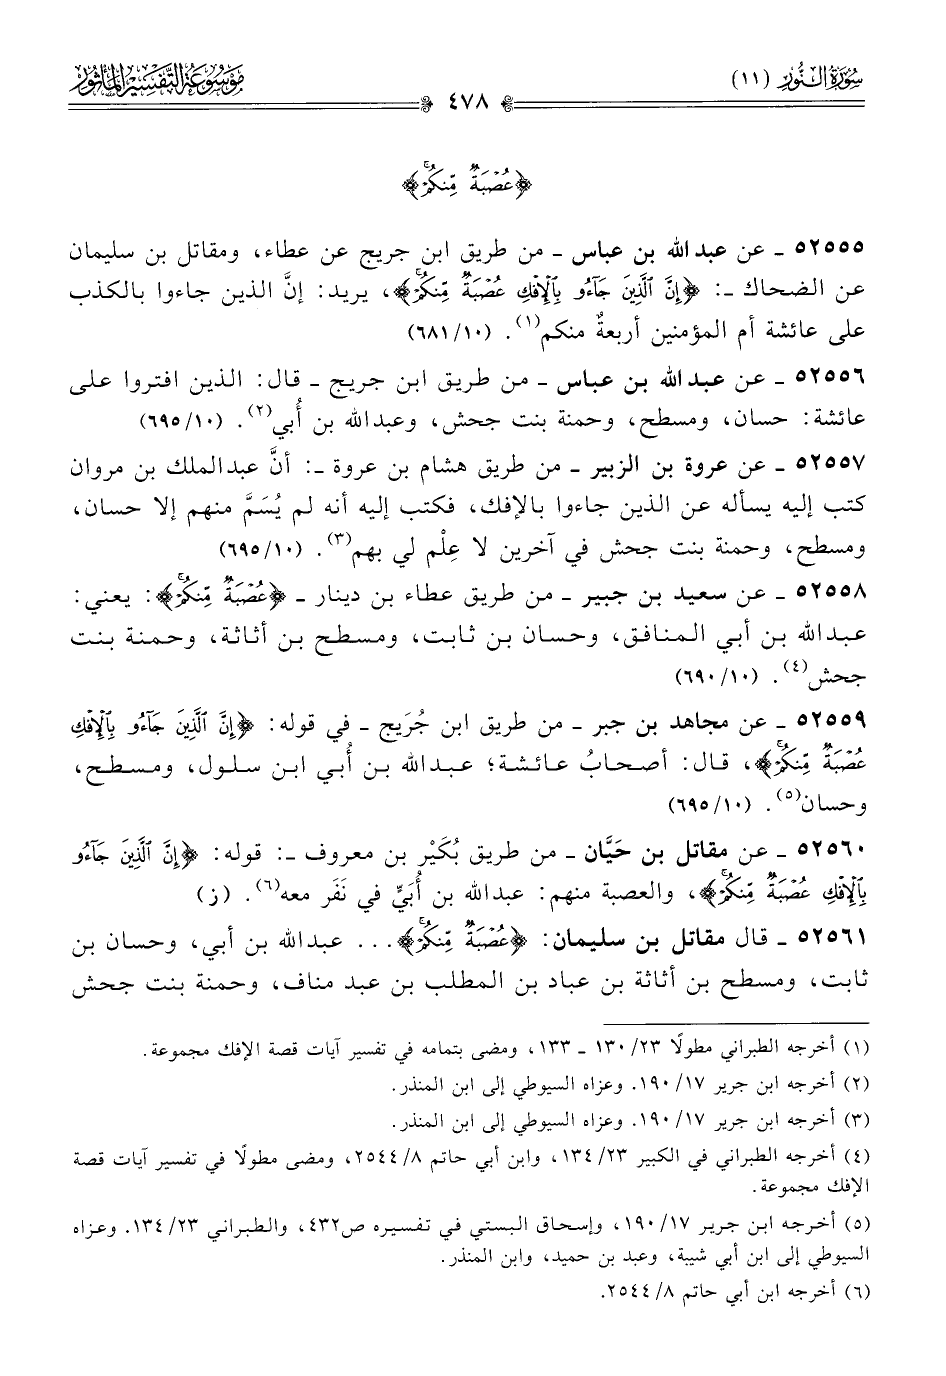 سُورَةُ النُّور (١١)
٤٧٨
مَوْسُوعَة التَّفْسِير المَأْثُور
﴿عُصْبَةٌ مِّنكُمْ﴾
٥٢٥٥٥ ـ عن عبدالله بن عباس ـ من طريق ابن جريج عن عطاء، ومقاتل بن سليمان
عن الضحاك ـ: ﴿إِنَّ ٱلَّذِينَ جَآءُو بِٱلْإِفْكِ عُصْبَةٌ مِّنكُمْ﴾، يريد: إنَّ الذين جاءوا بالكذب
على عائشة أم المؤمنين أربعةٌ منكم(١). (١٠/ ٦٨١)
٥٢٥٥٦ ـ عن عبدالله بن عباس ـ من طريق ابن جريج ـ قال: الذين افتروا على
عائشة: حسان، ومسطح، وحمنة بنت جحش، وعبدالله بن أُبي(٢). (١٠/ ٦٩٥)
٥٢٥٥٧ ـ عن عروة بن الزبير ـ من طريق هشام بن عروة ـ: أنَّ عبدالملك بن مروان
كتب إليه يسأله عن الذين جاءوا بالإفك، فكتب إليه أنه لم يُسَمَّ منهم إلا حسان،
ومسطح، وحمنة بنت جحش في آخرين لا عِلْم لي بهم(٣). (١٠/ ٦٩٥)
٥٢٥٥٨ ـ عن سعيد بن جبير ـ من طريق عطاء بن دينار ـ ﴿عُصْبَةٌ مِّنكُمْ﴾: يعني:
عبدالله بن أبي المنافق، وحسان بن ثابت، ومسطح بن أثاثة، وحمنة بنت
جحش(٤). (١٠/ ٦٩٠)
٥٢٥٥٩ ـ عن مجاهد بن جبر ـ من طريق ابن جُرَيج ـ في قوله: ﴿إِنَّ ٱلَّذِينَ جَآءُو بِٱلْإِفْكِ
عُصْبَةٌ مِّنكُمْ﴾، قال: أصحابُ عائشة؛ عبدالله بن أُبي ابن سلول، ومسطح،
وحسان(٥). (١٠/ ٦٩٥)
٥٢٥٦٠ ـ عن مقاتل بن حَيَّان ـ من طريق بُكَيْر بن معروف ـ: قوله: ﴿إِنَّ ٱلَّذِينَ جَآءُو
بِٱلْإِفْكِ عُصْبَةٌ مِّنكُمْ﴾، والعصبة منهم: عبدالله بن أُبَيٍّ في نَفَر معه(٦). (ز)
٥٢٥٦١ ـ قال مقاتل بن سليمان: ﴿عُصْبَةٌ مِّنكُمْ﴾... عبدالله بن أبي، وحسان بن
ثابت، ومسطح بن أثاثة بن عباد بن المطلب بن عبد مناف، وحمنة بنت جحش
(١) أخرجه الطبراني مطولًا ٢٣/ ١٣٠ ـ ١٣٣، ومضى بتمامه في تفسير آيات قصة الإفك مجموعة.
(٢) أخرجه ابن جرير ١٧/ ١٩٠. وعزاه السيوطي إلى ابن المنذر.
(٣) أخرجه ابن جرير ١٧/ ١٩٠. وعزاه السيوطي إلى ابن المنذر.
(٤) أخرجه الطبراني في الكبير ٢٣/ ١٣٤، وابن أبي حاتم ٨/ ٢٥٤٤، ومضى مطولًا في تفسير آيات قصة
الإفك مجموعة.
(٥) أخرجه ابن جرير ١٧/ ١٩٠، وإسحاق البستي في تفسيره ص٤٣٢، والطبراني ٢٣/ ١٣٤. وعزاه
السيوطي إلى ابن أبي شيبة، وعبد بن حميد، وابن المنذر.
(٦) أخرجه ابن أبي حاتم ٨/ ٢٥٤٤.